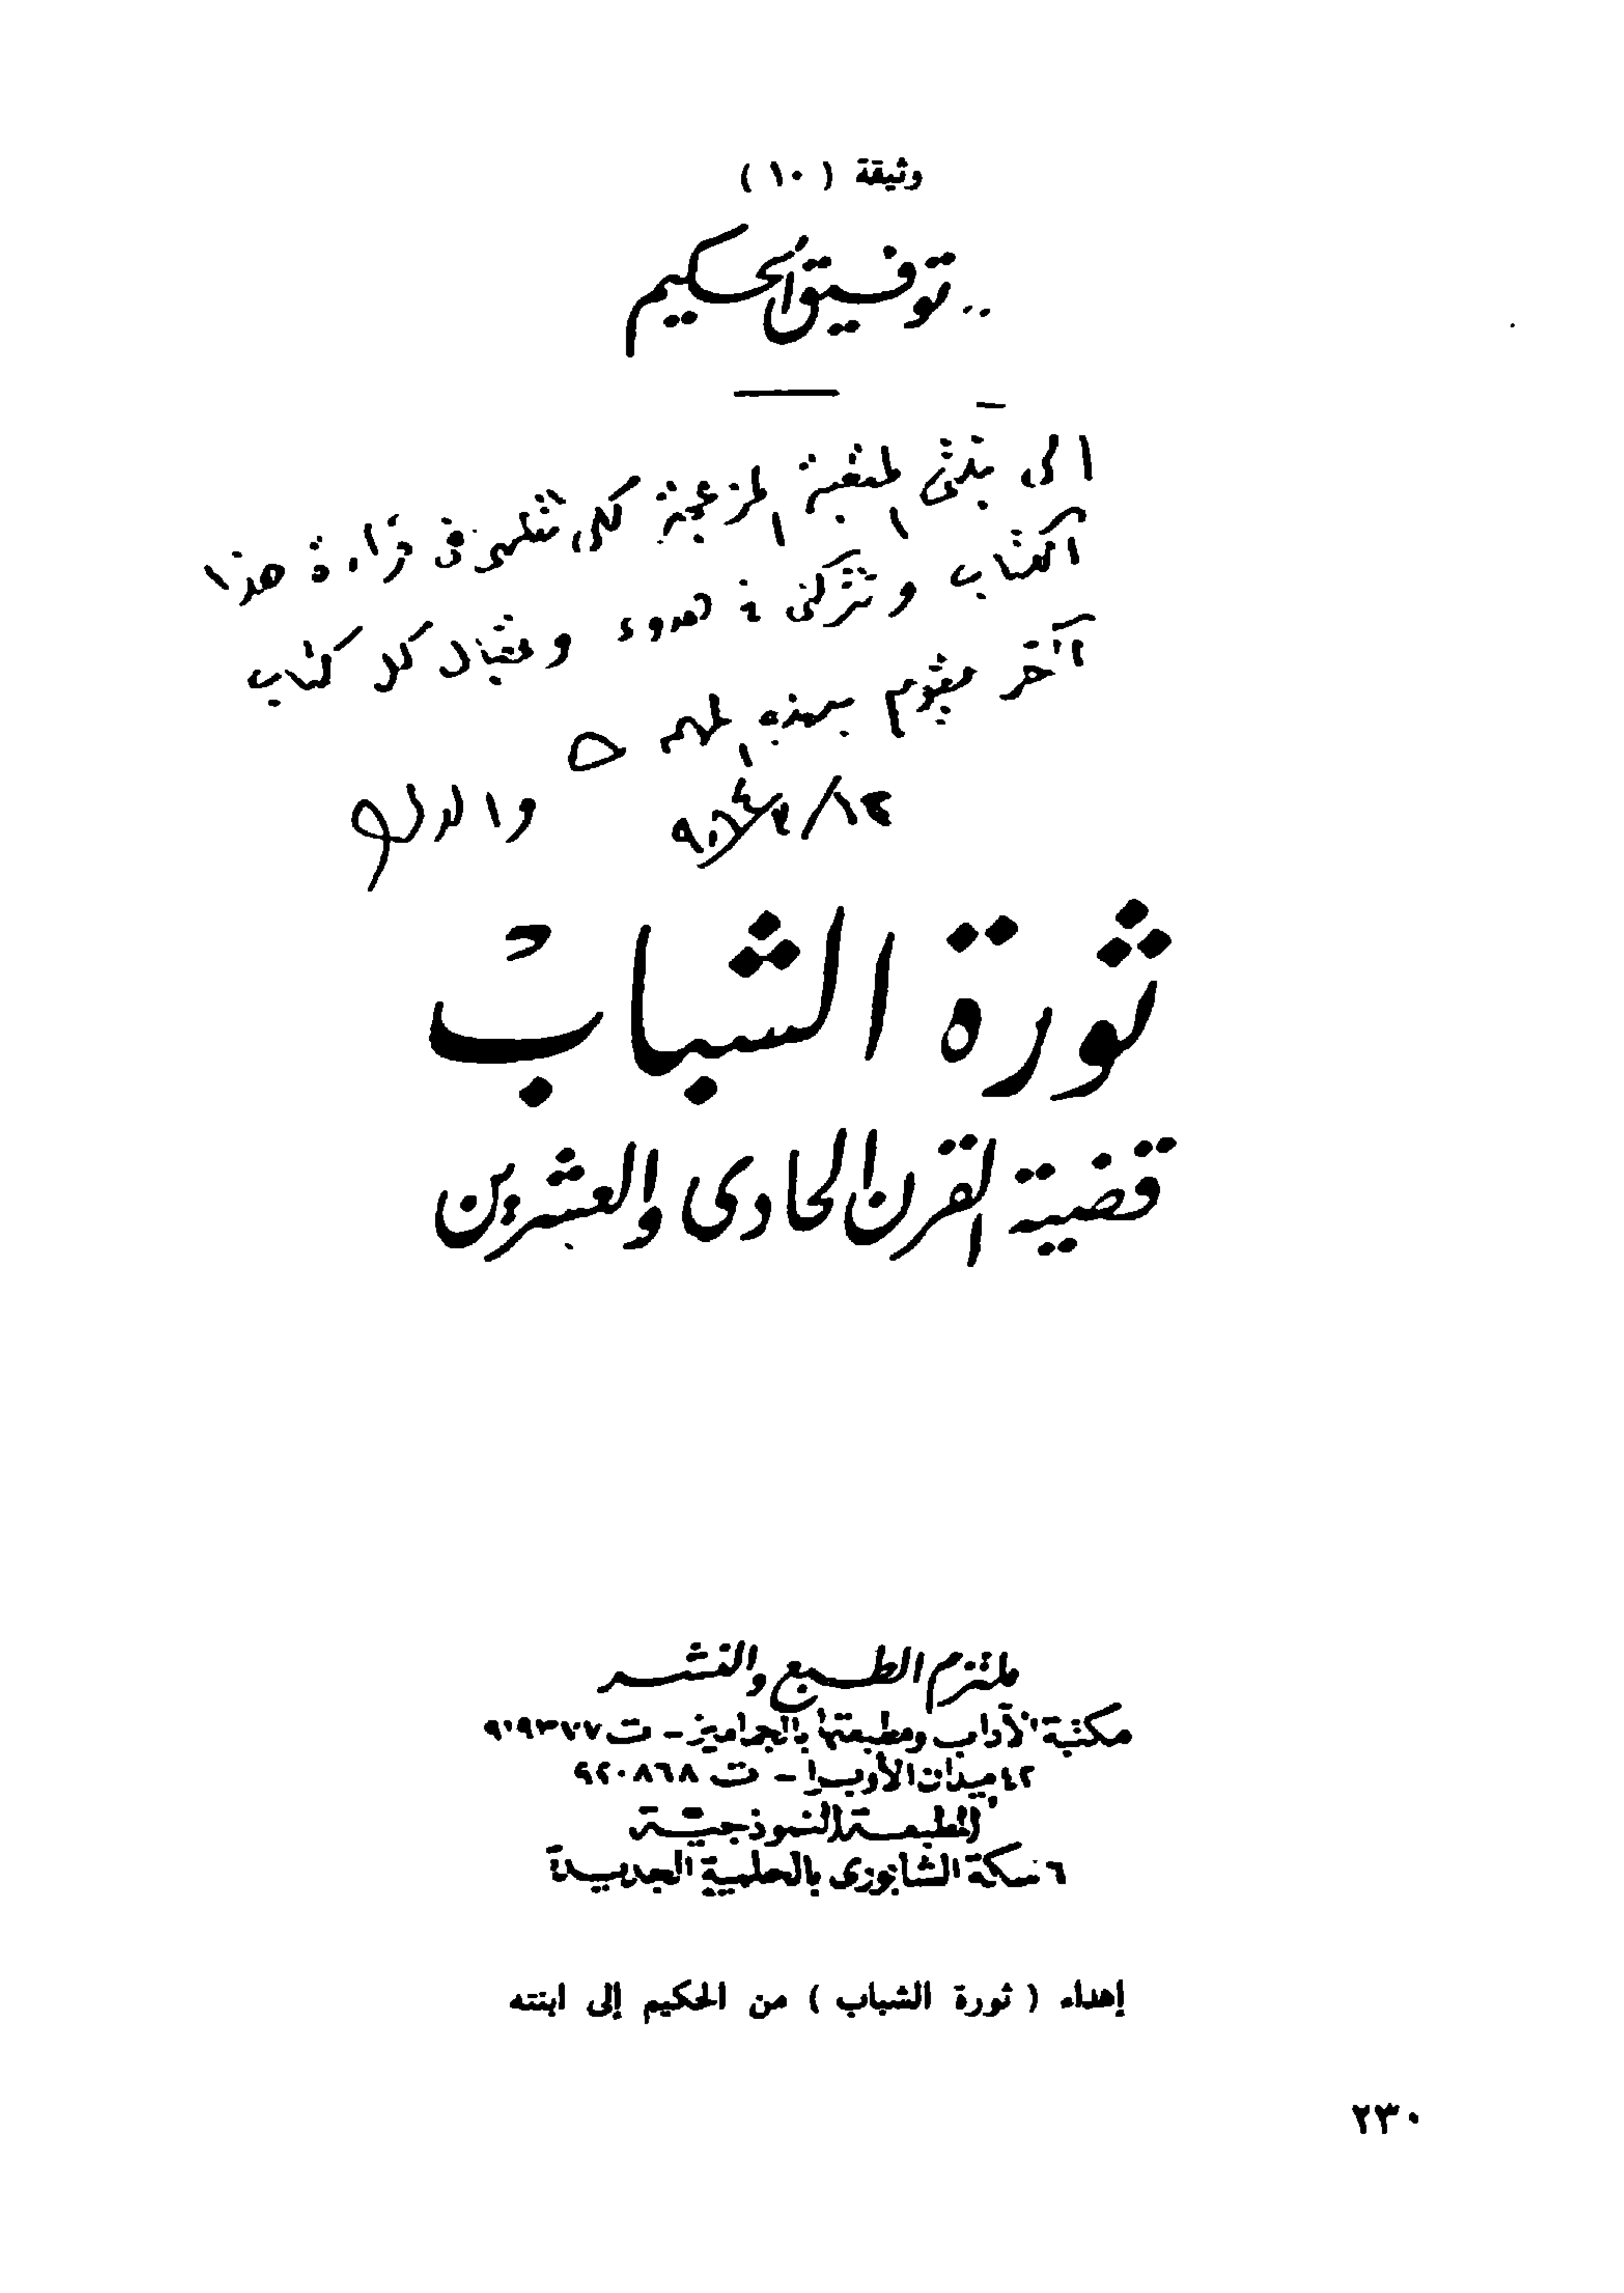 وثيقة ( ١٠ )
.. توفيق الحكيم
الى بنتى المتعبة المزعجة لكى تنلهى فى قراءة هذا
الكتاب وتتركنى فى هدوء وعقبال كل كتاب
آخر يقوم بهذه المهمة
والدك
ثورة الشباب
قضية القرن الحادى والعشرين
ملتزم الطبع والنشر
مكتبة الآداب ومطبعتها بالجماميز - ت ٩١٩٣٧٧
٤٢ ميدان الأوبرا - ت ٩٢٠٨٦٨
المطبعة النموذجية
٦ سكة الشابورى بالحلمية الجديدة
إهداء ( ثورة الشباب ) من الحكيم إلى ابنته
٢٣٠